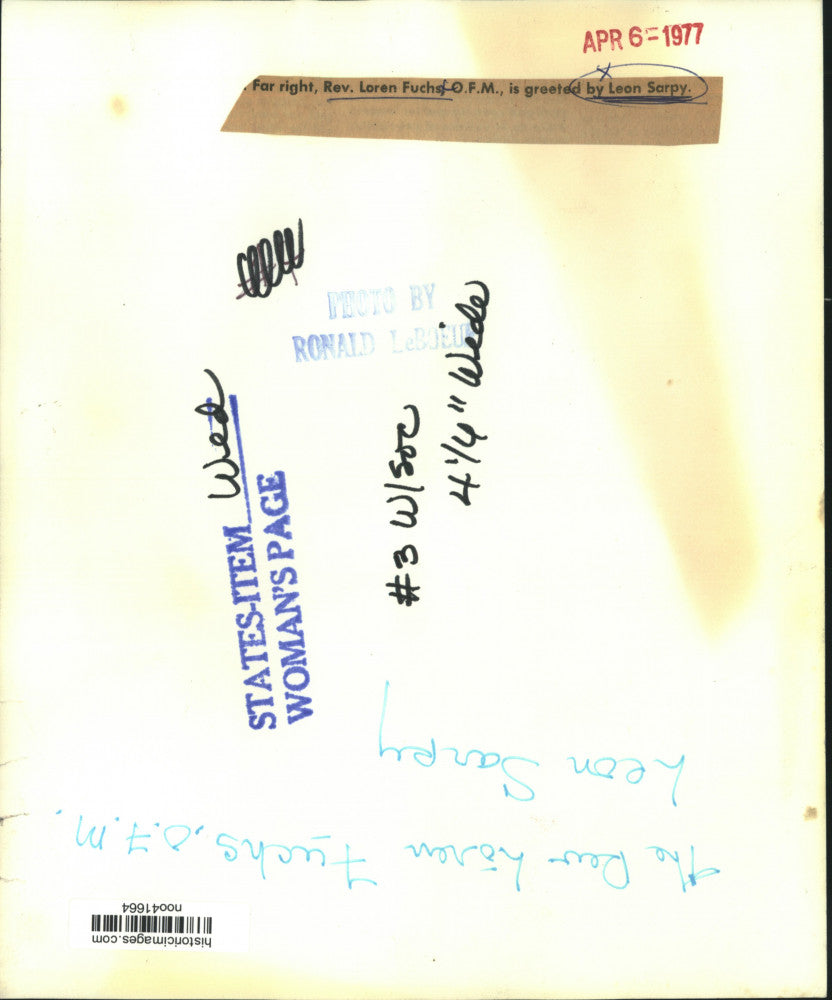 APR 6 - 1977
. Far right, Rev. Loren Fuchs, O.F.M., is greeted by Leon Sarpy.
PHOTO BY
RONALD LeBOEUF
STATES-ITEM Wed
WOMAN'S PAGE
#3 W/Soc
4 1/4" Wide
The Rev Loren Fuchs, O.F.M.
Leon Sarpy
historicimages.com
noo41664